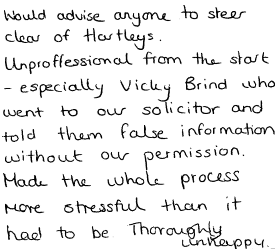 Would advise anyone to steer
clear of Hartleys.
Unproffessional from the start
- especially Vicky Brind who
went to our solicitor and
told them false information
without our permission.
Made the whole process
more stressful than it
had to be. Thoroughly
unhappy.